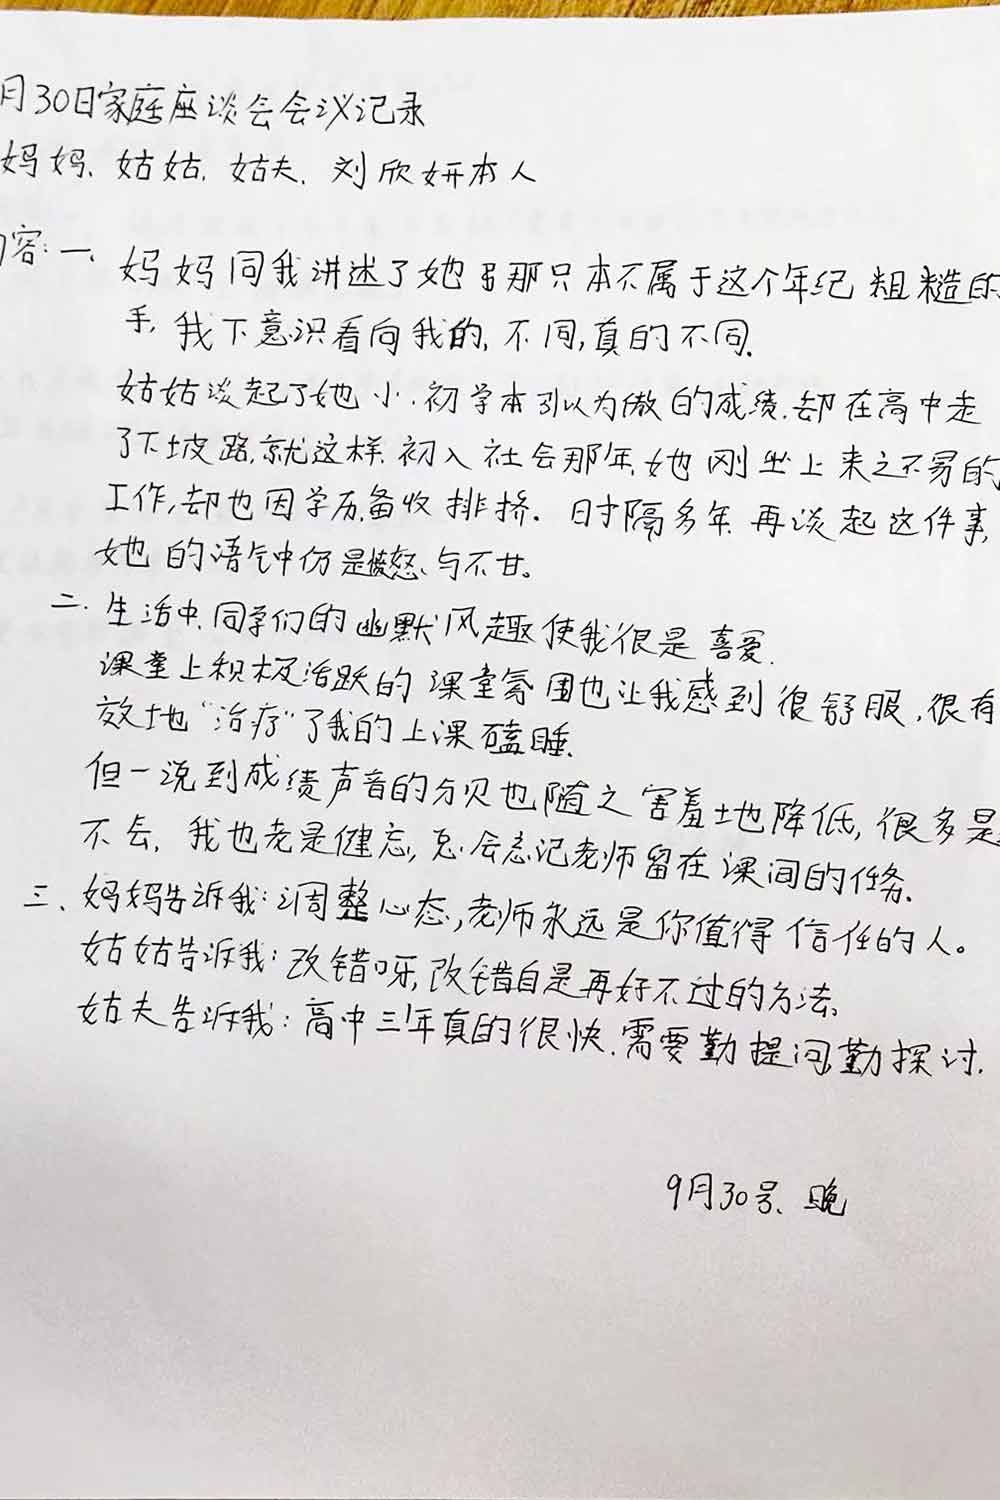 月30日家庭座谈会会议记录
妈妈、姑姑、姑夫、刘欣妍本人
内容:一、妈妈同我讲述了她那只本不属于这个年纪粗糙的
手,我下意识看向我的,不同,真的不同。
姑姑谈起了她小、初学本引以为傲的成绩,却在高中走
了下坡路,就这样,初入社会那年,她刚坐上来之不易的
工作,却也因学历备收排挤。时隔多年,再谈起这件事,
她的语气中仍是愤怒、与不甘。
二、生活中,同学们的幽默风趣使我很是喜爱。
课堂上积极活跃的课堂氛围也让我感到很舒服,很有
效地“治疗”了我的上课瞌睡。
但一说到成绩声音的分贝也随之害羞地降低,很多是
不会,我也老是健忘,总会忘记老师留在课间的任务。
三、妈妈告诉我:调整心态,老师永远是你值得信任的人。
姑姑告诉我:改错呀,改错自是再好不过的方法。
姑夫告诉我:高中三年真的很快,需要勤提问,勤探讨.
9月30号、晚